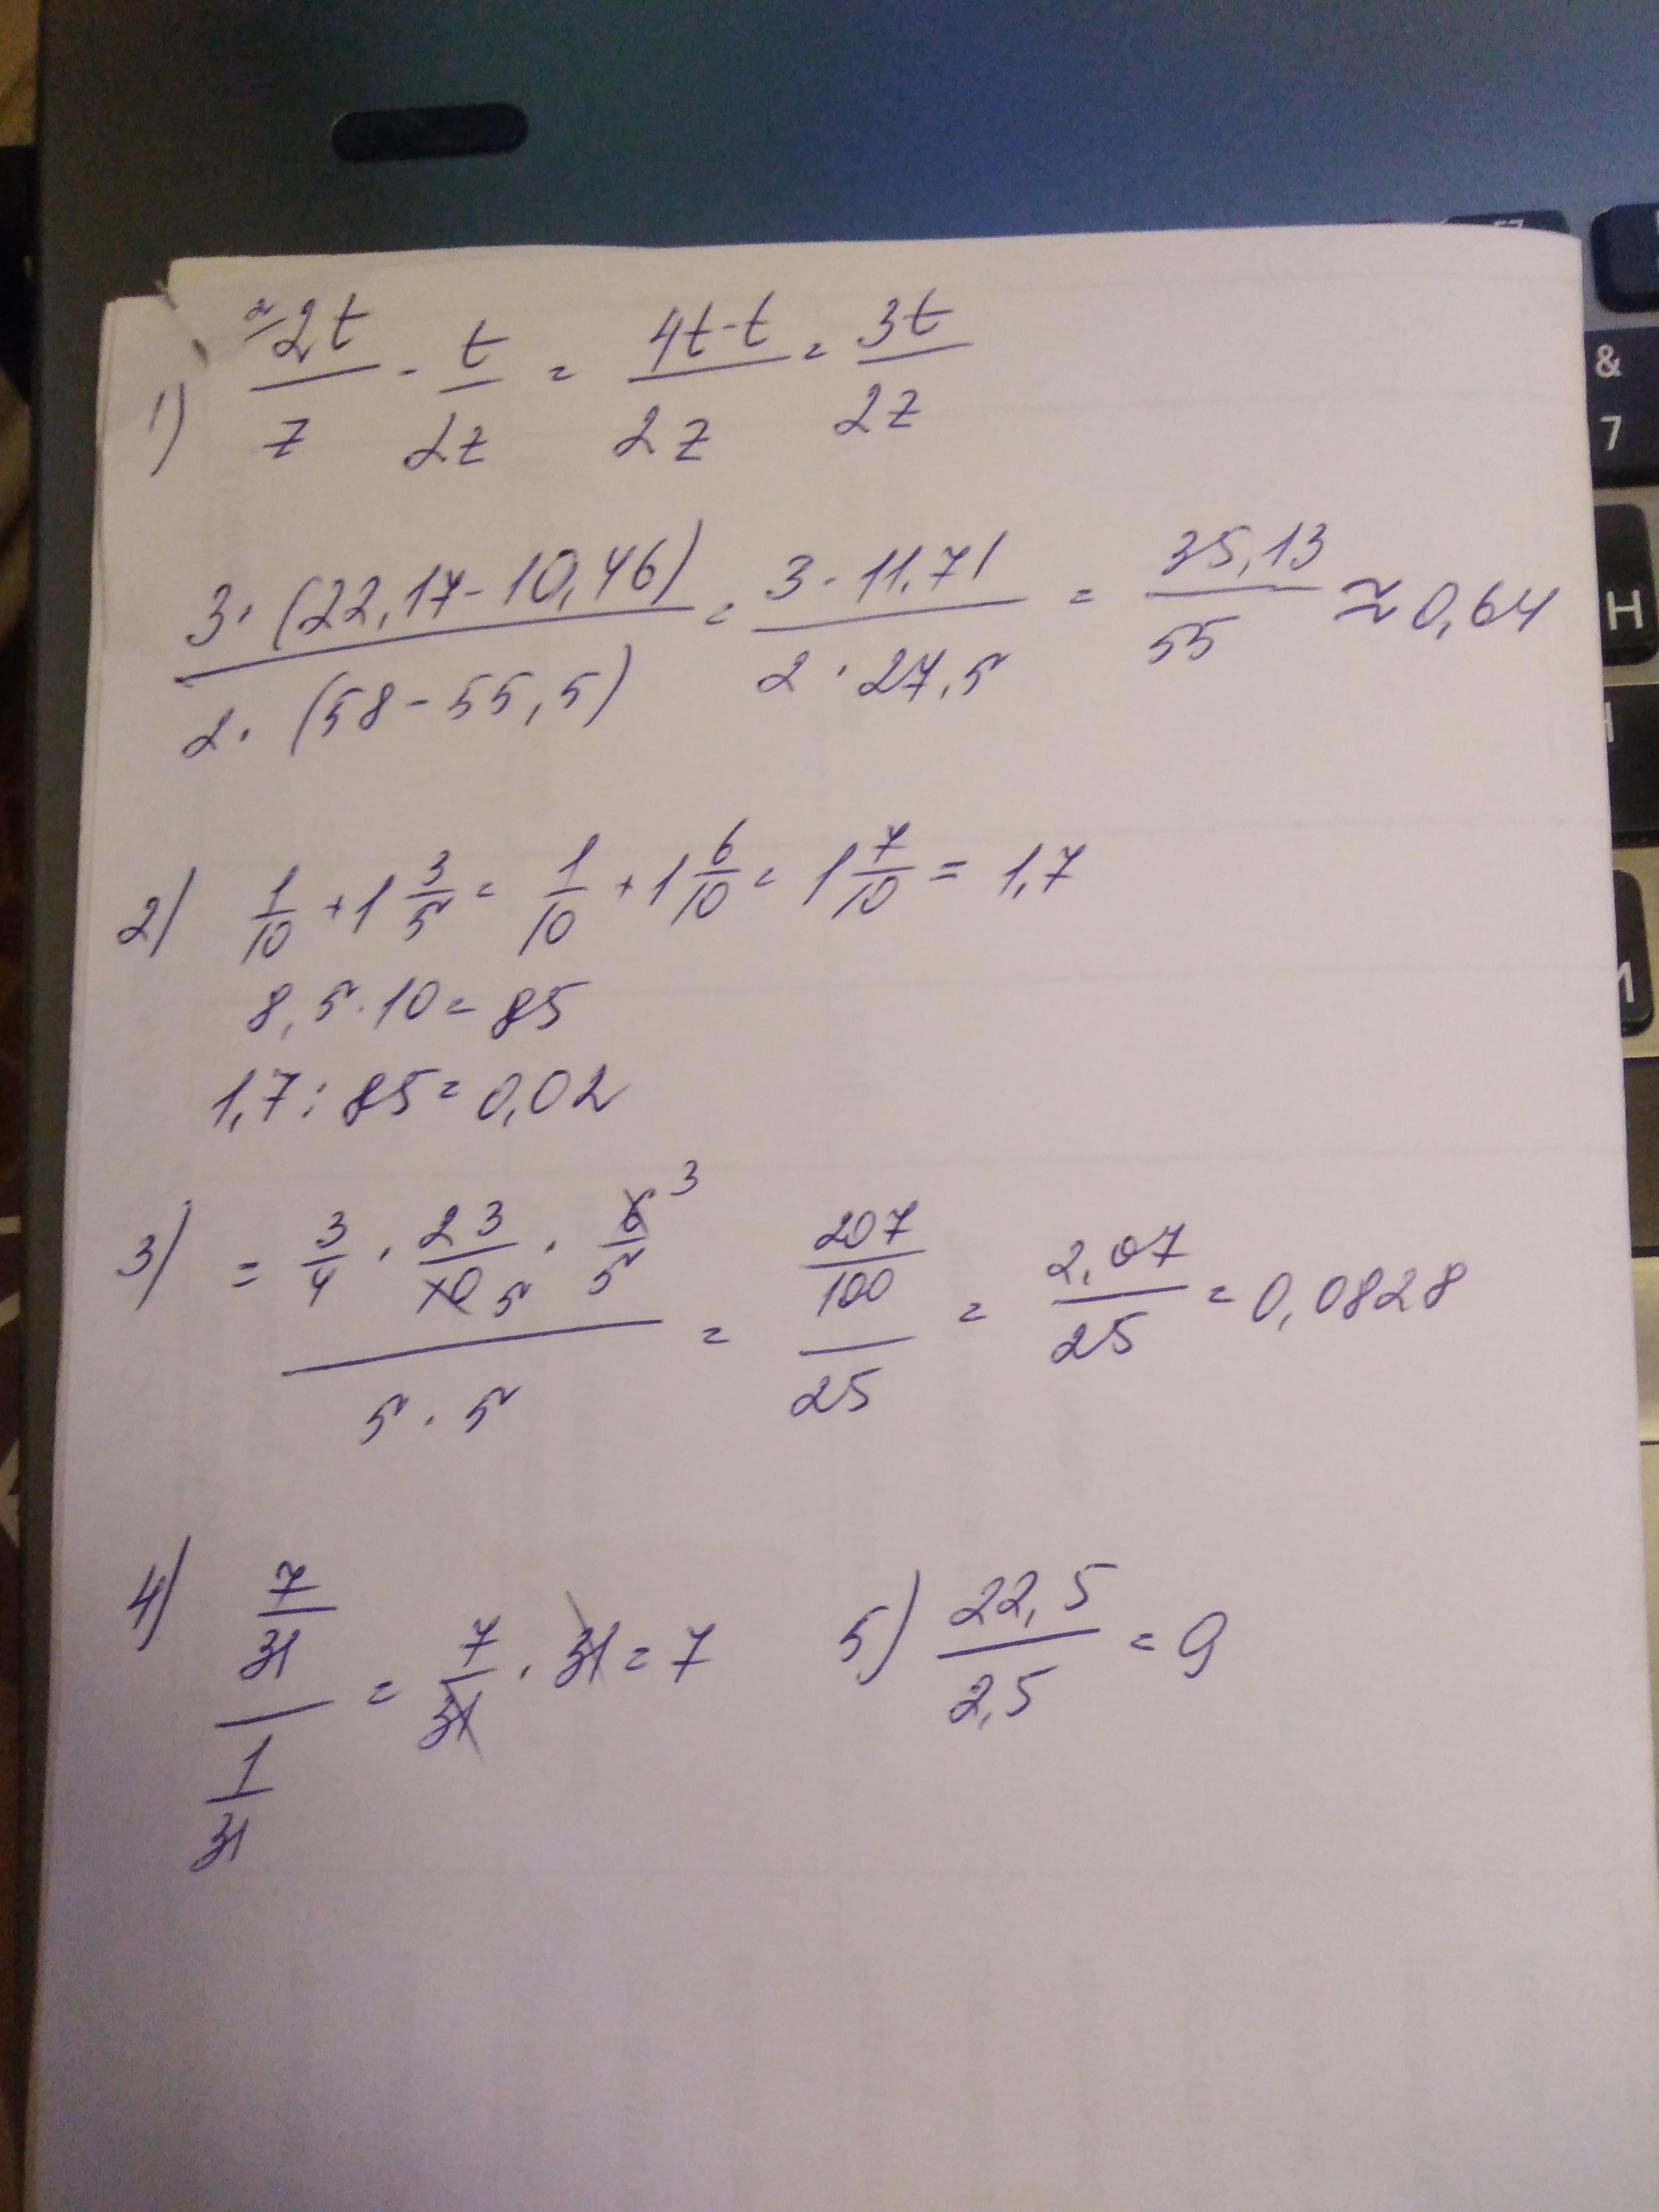 1) 2t/z - t/2z = 4t-t/2z = 3t/2z
3·(22,17-10,46)/2·(58-55,5) = 3·11,71/2·27,5 = 35,13/55 ≈ 0,64
2) 1/10 + 1 3/5 = 1/10 + 1 6/10 = 1 7/10 = 1,7
8,5·10 = 85
1,7 : 85 = 0,02
3) = 3/4 · 23/10 5 · 6/5 3 / 5·5 = 207/100 / 25 = 2,07/25 = 0,0828
4) 7/31 / 1/31 = 7/31 · 31 = 7
5) 22,5/2,5 = 9
&
7
H
M